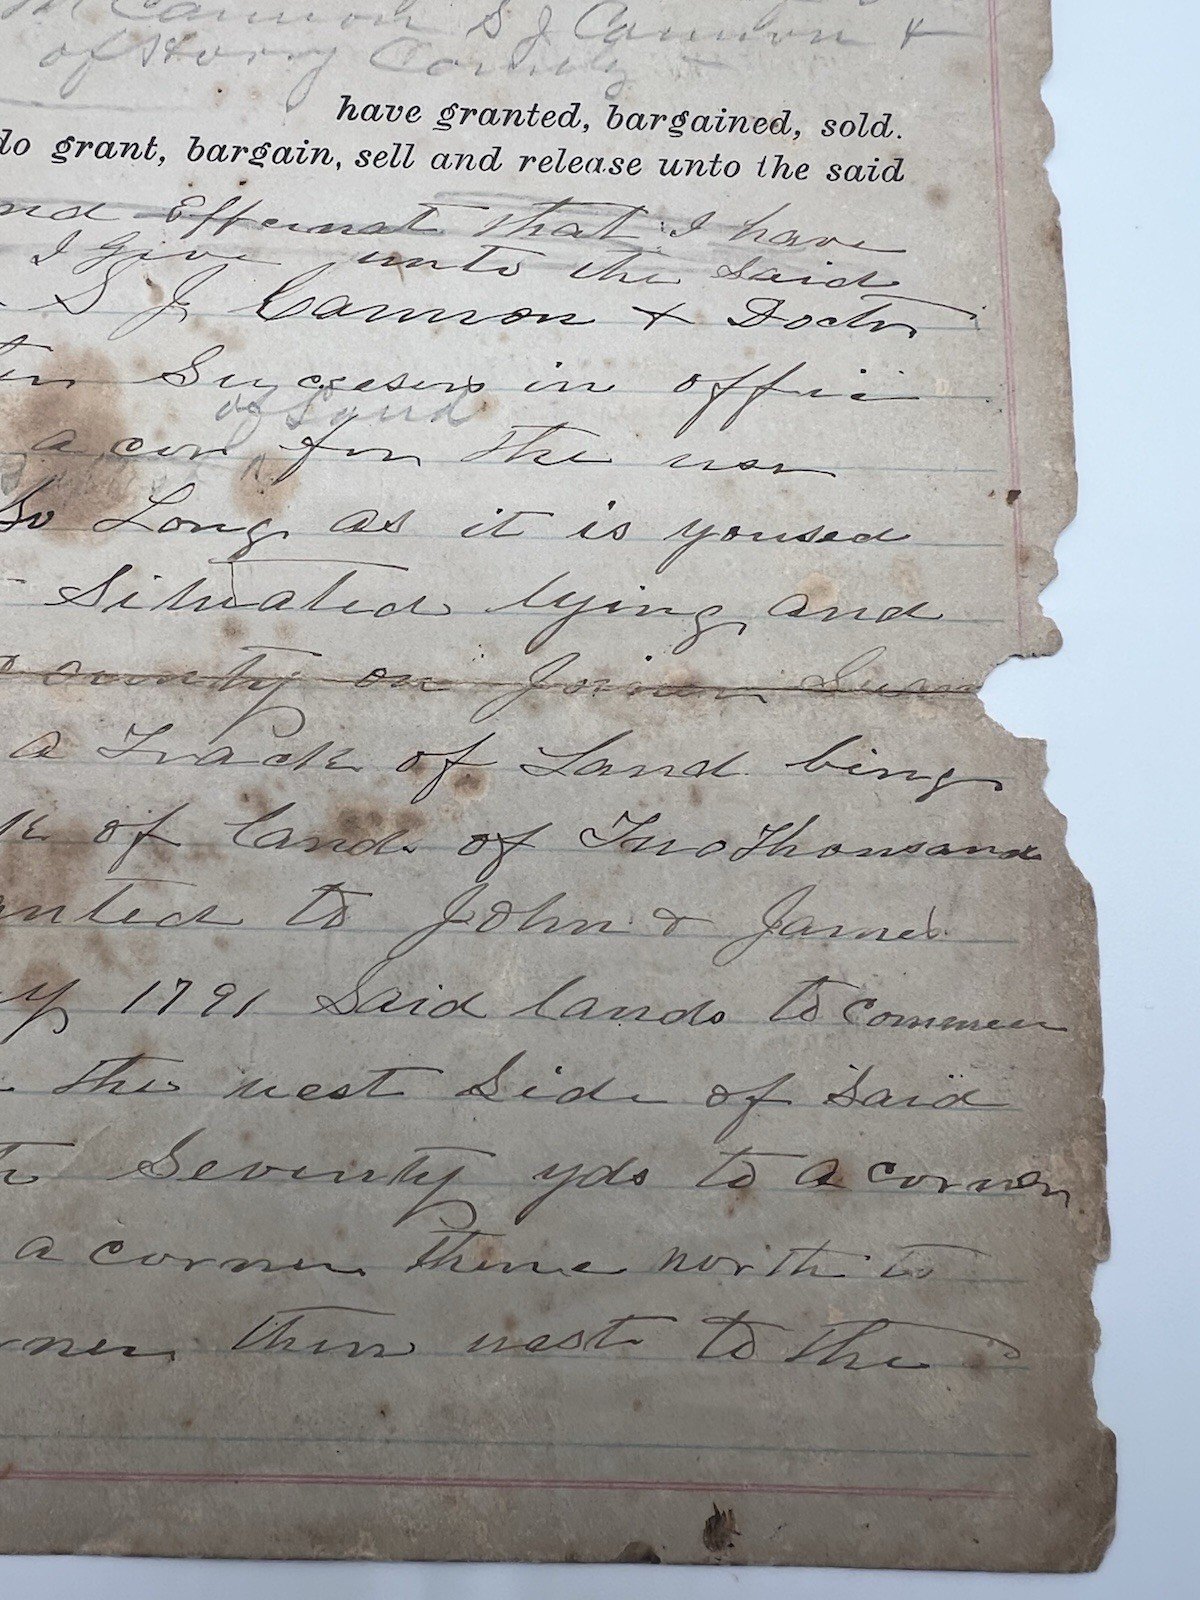 M Cannon S J Cannon +
of Horry County
have granted, bargained, sold.
do grant, bargain, sell and release unto the said
nd Effernat that I have
I give unto the said
S J Cannon + Doctr
in offii
of Land
a cor for the use
So Long as it is yoused
Situated lying and
County on Joiner Swam
a Track of Land bing
k of lands of Two Thousand
anted to John & James
y 1791 Said lands to commen
the west Side of Said
Seventy yds to a corner
a corner thence north to
rner then west to the